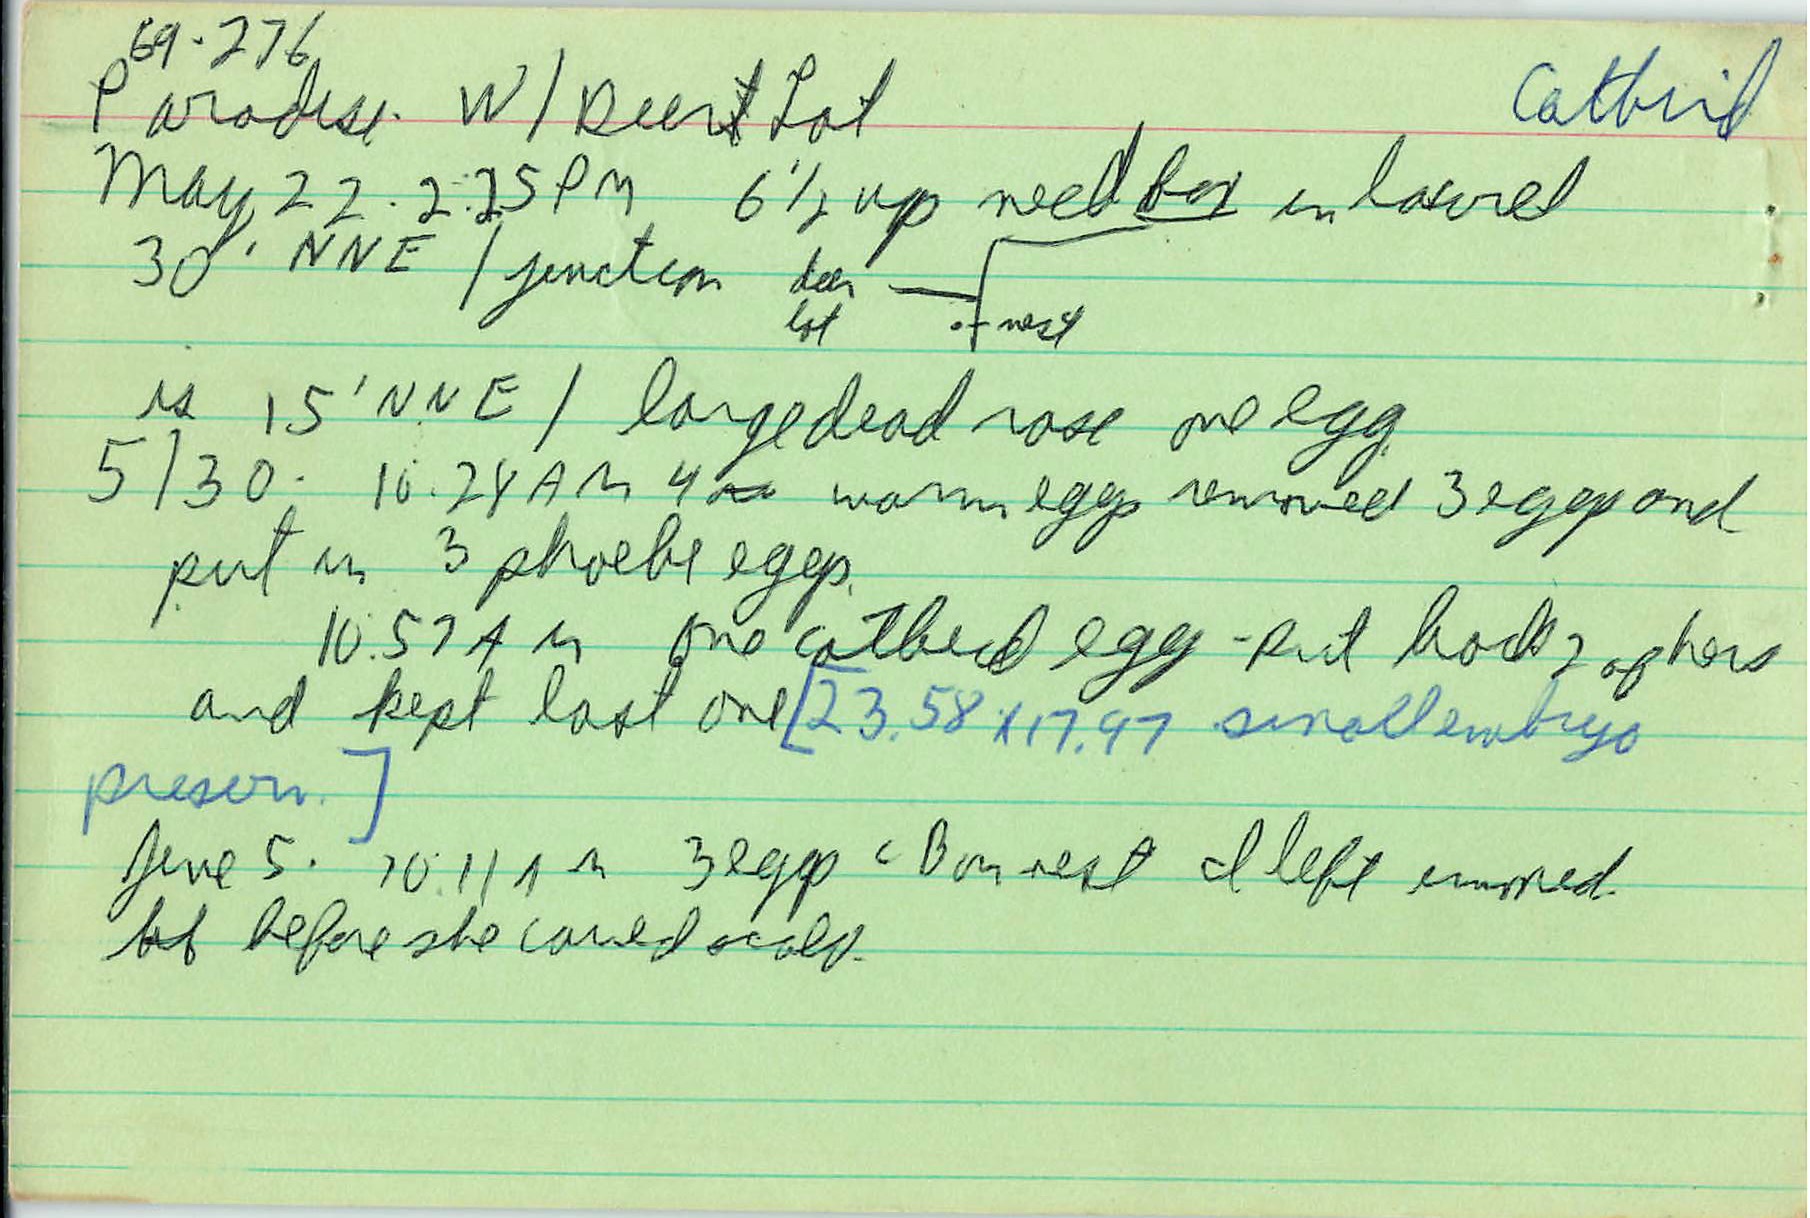 69-276
Catbird
Paradise. W/Deer Lot
May 22. 2:25 PM 6½ up need box in laurel
30' NNE / junction deer lot nest
is 15' NNE / large dead rose one egg.
5/30. 10.28 AM 4 warm eggs removed 3 eggs and
put in 3 phoebe eggs.
10.57 AM one catbird egg - Put back 2 of hers
and kept last one [23.58 x 17.97 small embryo
preserv.]
June 5. 10.11 AM 3 eggs c B on nest I left
before she